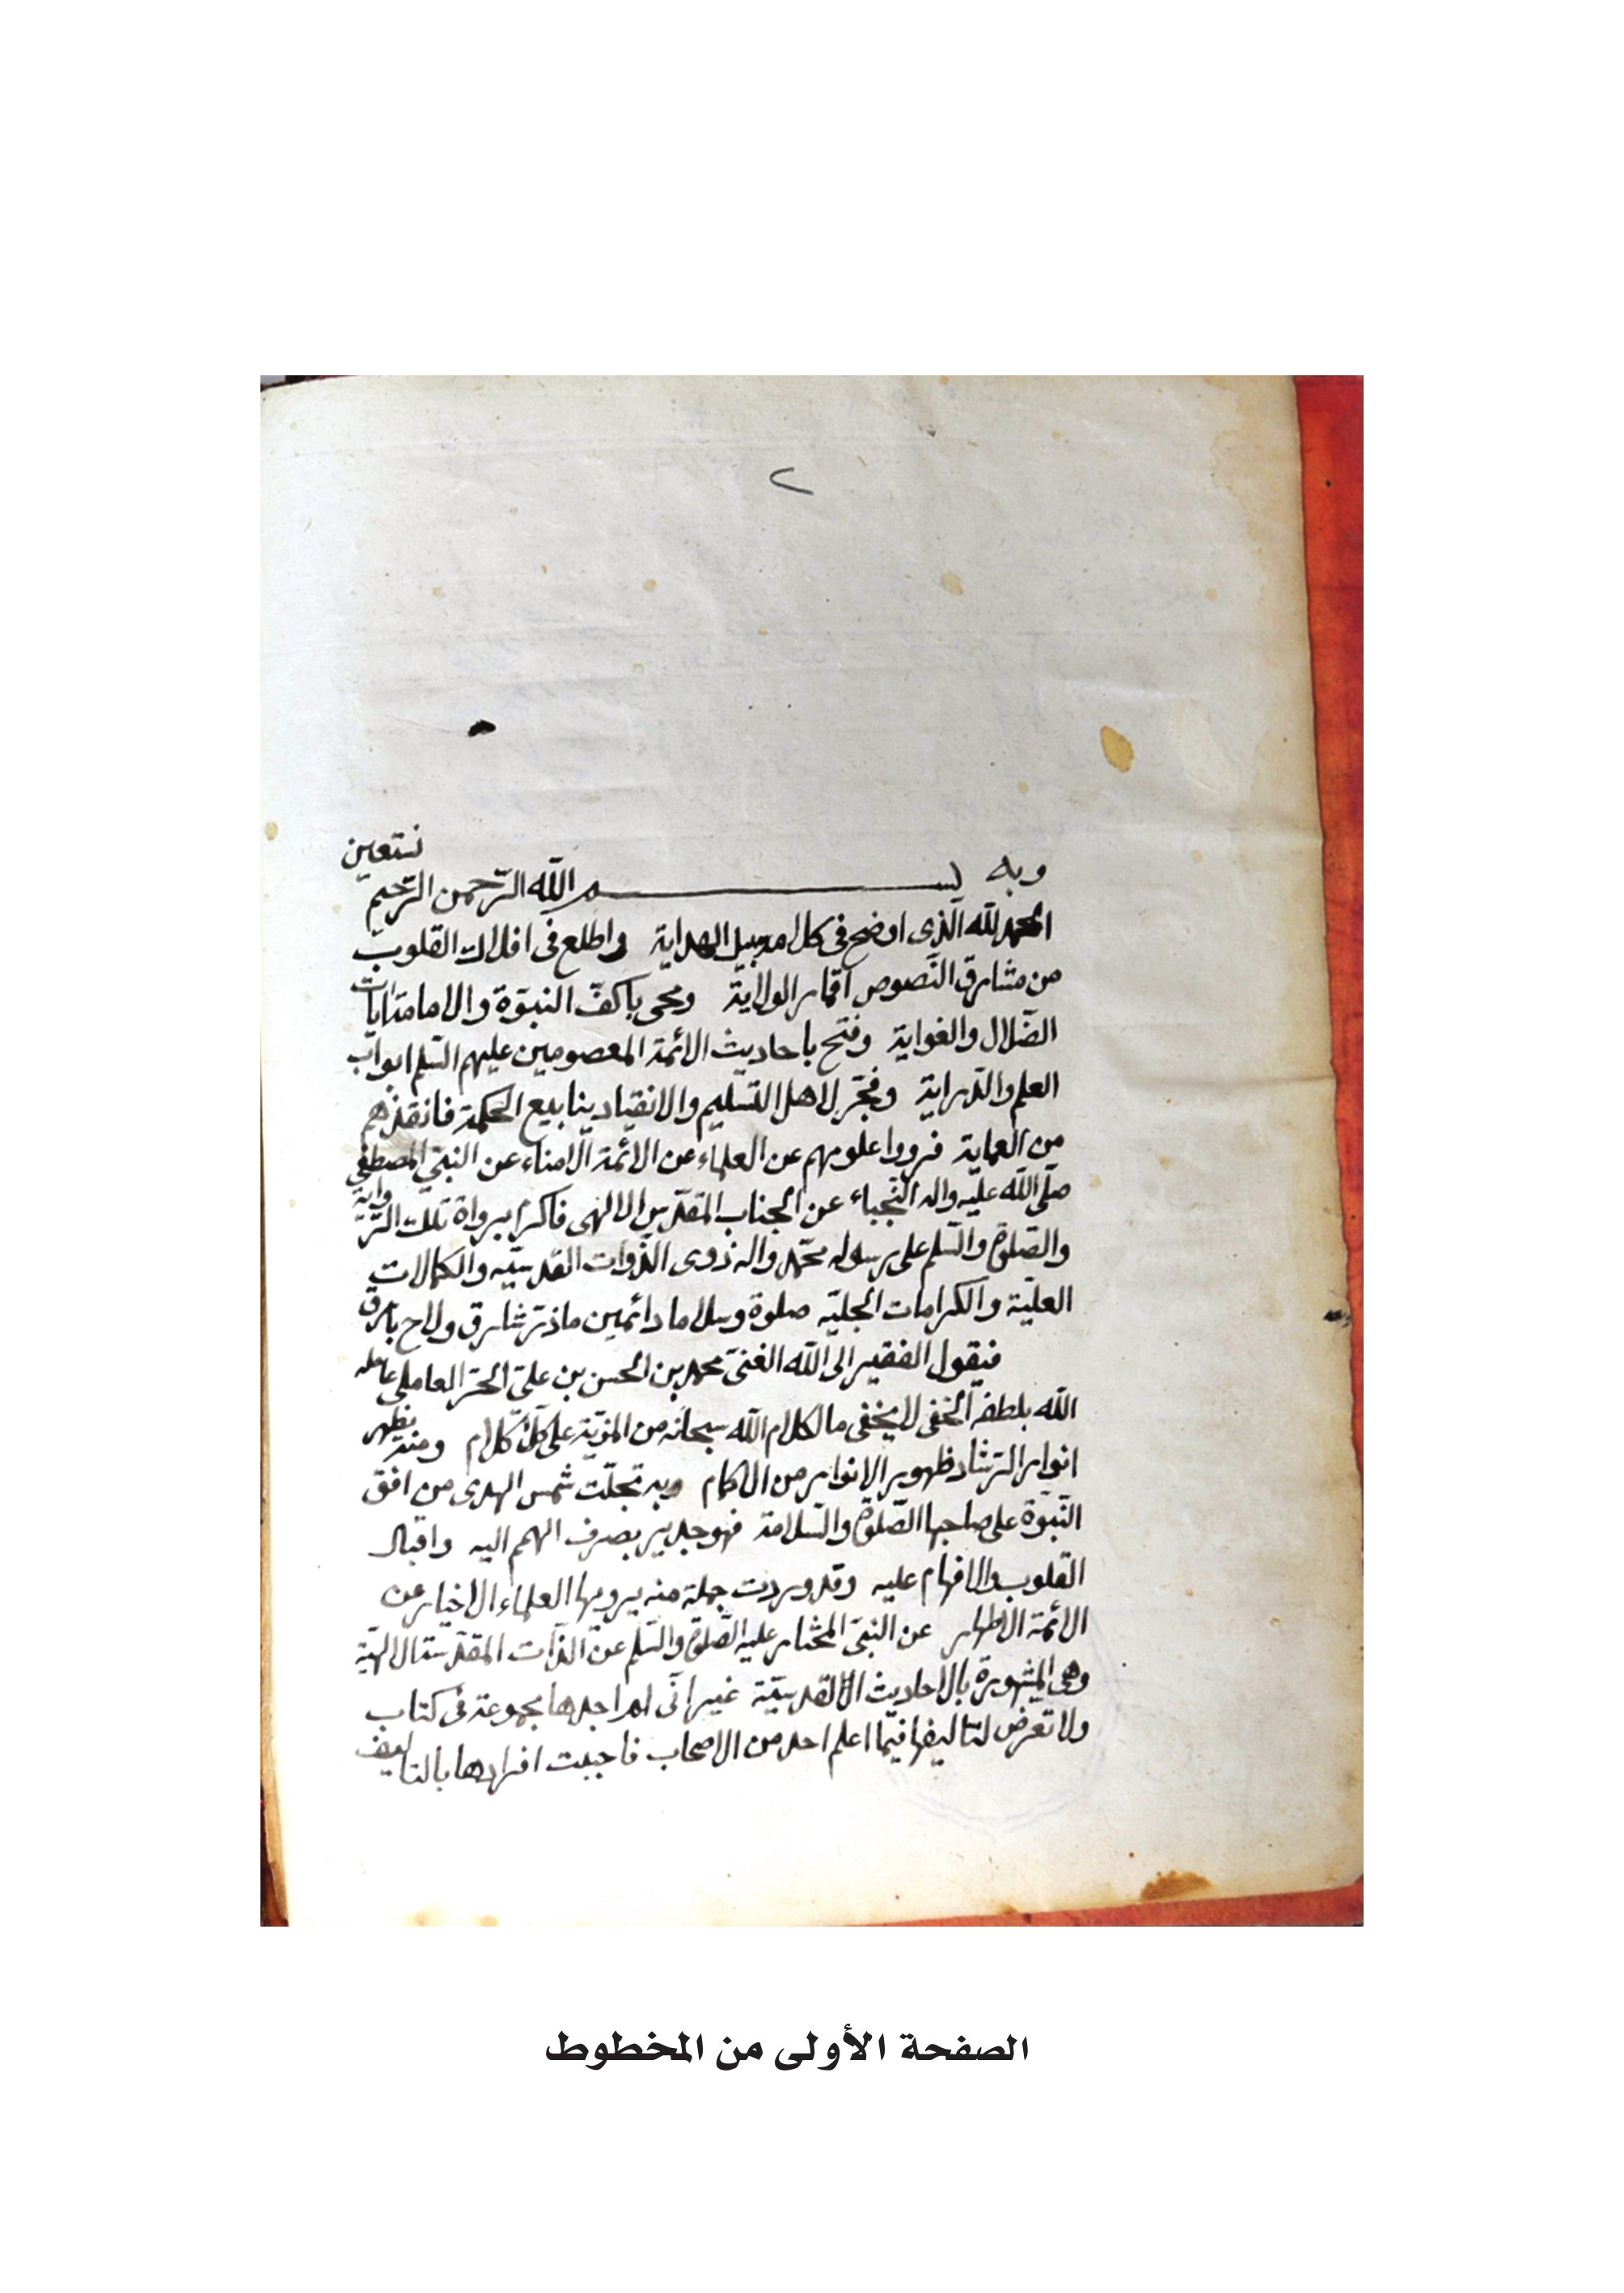 ٢
وبه نستعين
بسم الله الرّحمن الرّحيم
الحمد لله الّذى اوضح فى كل امر سبيل الهداية واطلع فى افلاك القلوب
من مشارق النّصوص اقمار الولاية ومحى باكفّ النبوّة والامامة ايات
الضّلال والغواية وفتح باحاديث الائمة المعصومين عليهم السّلم ابواب
العلم والدّراية وفجّر لاهل التسليم والانقياد ينابيع الحكمة فانقذهم
من العماية فرووا علومهم عن العلماء عن الائمة الامناء عن النبىّ المصطفى
صلّى الله عليه واله النّجباء عن الجناب المقدّس الالهى فاكرم برواة تلك الرّواية
والصّلوة والسّلم على رسوله محمّد واله ذوى الذّوات القدسيّه والكمالات
العليّة والكرامات الجليّه صلوة وسلاما دائمين ماذرّ شارق ولاح بارق
فيقول الفقير الى الله الغنىّ محمد بن الحسن بن علىّ الحرّ العاملى عامله
الله بلطفه الخفى لا يخفى ما لكلام الله سبحانه من المزيّة على كلّ كلام ومنه يظهر
انوار الرّشاد ظهور الانوار من الاكمام وبه تجلّت شمس الهدى من افق
النّبوّة على صاحبها الصّلوة والسّلامة فهو جدير بصرف الهمم اليه واقبال
القلوب والافهام عليه وقد وردت جملة منه يرويها العلماء الاخيار عن
الائمة الاطهار عن النبىّ المختار عليه الصّلوة والسّلم عن الذّات المقدّسة الالهيّة
وهى المشهورة بالاحاديث القدسيّة غير انّى لم اجدها مجموعة فى كتاب
ولا تعرض لتاليفها فيما اعلم احد من الاصحاب فاحببت افرادها بالتاليف
الصفحة الأولى من المخطوط